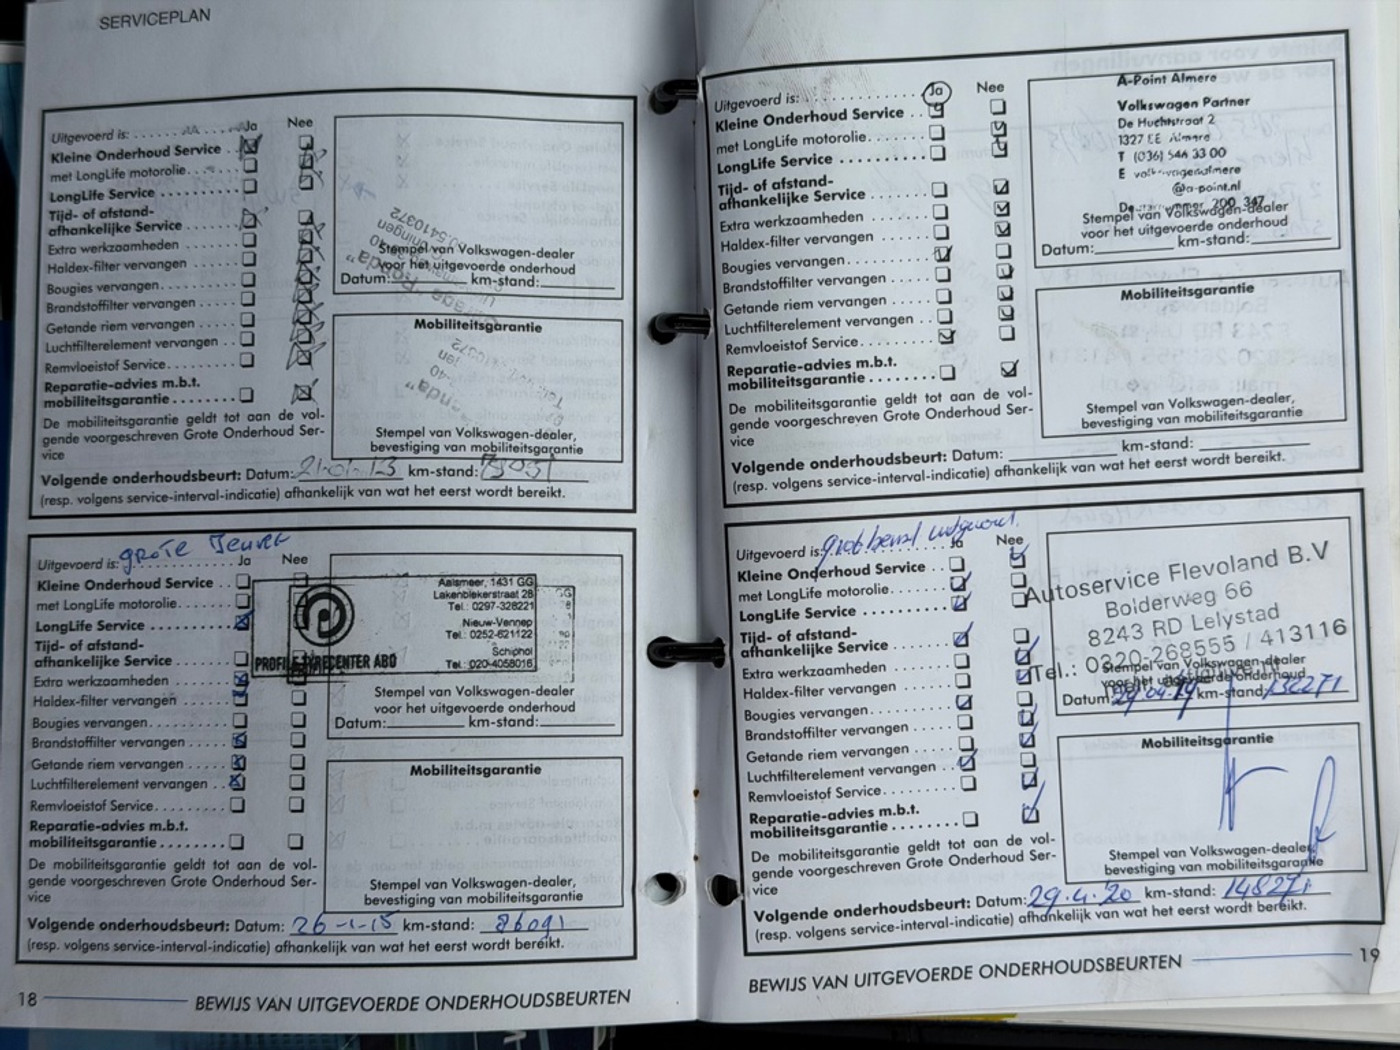 SERVICEPLAN
Uitgevoerd is: Ja Nee
Kleine Onderhoud Service
met LongLife motorolie
LongLife Service
Tijd- of afstand-
afhankelijke Service
Extra werkzaamheden
Haldex-filter vervangen
Bougies vervangen
Brandstoffilter vervangen
Getande riem vervangen
Luchtfilterelement vervangen
Remvloeistof Service
Reparatie-advies m.b.t.
mobiliteitsgarantie
De mobiliteitsgarantie geldt tot aan de vol-
gende voorgeschreven Grote Onderhoud Ser-
vice
Stempel van Volkswagen-dealer
voor het uitgevoerde onderhoud
Datum: km-stand:
Mobiliteitsgarantie
Stempel van Volkswagen-dealer,
bevestiging van mobiliteitsgarantie
Volgende onderhoudsbeurt: Datum: km-stand:
(resp. volgens service-interval-indicatie) afhankelijk van wat het eerst wordt bereikt.
grote Beurt
Uitgevoerd is: Ja Nee
Kleine Onderhoud Service
met LongLife motorolie
LongLife Service
Tijd- of afstand-
afhankelijke Service
Extra werkzaamheden
Haldex-filter vervangen
Bougies vervangen
Brandstoffilter vervangen
Getande riem vervangen
Luchtfilterelement vervangen
Remvloeistof Service
Reparatie-advies m.b.t.
mobiliteitsgarantie
De mobiliteitsgarantie geldt tot aan de vol-
gende voorgeschreven Grote Onderhoud Ser-
vice
PROFILE TYRECENTER ABO
Aalsmeer, 1431 GG
Lakenblekerstraat 28
Tel.: 0297-328221
Nieuw-Vennep
Tel.: 0252-621122
Schiphol
Tel.: 020-4058016
Stempel van Volkswagen-dealer
voor het uitgevoerde onderhoud
Datum: km-stand:
Mobiliteitsgarantie
Stempel van Volkswagen-dealer,
bevestiging van mobiliteitsgarantie
Volgende onderhoudsbeurt: Datum: 26-1-15 km-stand: 86091
(resp. volgens service-interval-indicatie) afhankelijk van wat het eerst wordt bereikt.
18 BEWIJS VAN UITGEVOERDE ONDERHOUDSBEURTEN
Uitgevoerd is: Ja Nee
Kleine Onderhoud Service
met LongLife motorolie
LongLife Service
Tijd- of afstand-
afhankelijke Service
Extra werkzaamheden
Haldex-filter vervangen
Bougies vervangen
Brandstoffilter vervangen
Getande riem vervangen
Luchtfilterelement vervangen
Remvloeistof Service
Reparatie-advies m.b.t.
mobiliteitsgarantie
De mobiliteitsgarantie geldt tot aan de vol-
gende voorgeschreven Grote Onderhoud Ser-
vice
A-Point Almere
Volkswagen Partner
De Huchtstraat 2
1327 EE Almere
T (036) 546 33 00
@a-point.nl
Stempel van Volkswagen-dealer
voor het uitgevoerde onderhoud
Datum: km-stand:
Mobiliteitsgarantie
Stempel van Volkswagen-dealer,
bevestiging van mobiliteitsgarantie
Volgende onderhoudsbeurt: Datum: km-stand:
(resp. volgens service-interval-indicatie) afhankelijk van wat het eerst wordt bereikt.
Uitgevoerd is: Ja Nee
Kleine Onderhoud Service
met LongLife motorolie
LongLife Service
Tijd- of afstand-
afhankelijke Service
Extra werkzaamheden
Haldex-filter vervangen
Bougies vervangen
Brandstoffilter vervangen
Getande riem vervangen
Luchtfilterelement vervangen
Remvloeistof Service
Reparatie-advies m.b.t.
mobiliteitsgarantie
De mobiliteitsgarantie geldt tot aan de vol-
gende voorgeschreven Grote Onderhoud Ser-
vice
Autoservice Flevoland B.V
Bolderweg 66
8243 RD Lelystad
Tel.: 0320-268555 / 413116
Stempel van Volkswagen-dealer
voor het uitgevoerde onderhoud
Datum: 29.04.19 km-stand: 132271
Mobiliteitsgarantie
Stempel van Volkswagen-dealer,
bevestiging van mobiliteitsgarantie
Volgende onderhoudsbeurt: Datum: 29.4.20 km-stand: 148271
(resp. volgens service-interval-indicatie) afhankelijk van wat het eerst wordt bereikt.
BEWIJS VAN UITGEVOERDE ONDERHOUDSBEURTEN 19